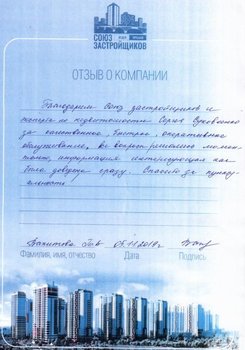 СОЮЗ
ЗАСТРОЙЩИКОВ
ОТЗЫВ О КОМПАНИИ
Благодарим Союз застройщиков и
эксперта по недвижимости Сергея
за качественное, быстрое, оперативное
обслуживание, все вопросы решались
информация интересующая нас
была доведена сразу. Спасибо за пункту-
альность
Фамилия, имя, отчество Дата Подпись